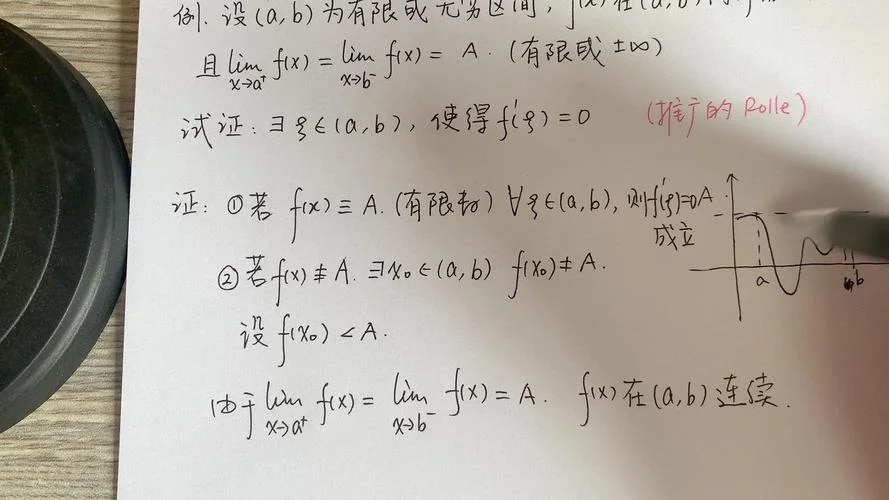 例. 设(a,b)为有限或无穷区间, f(x)在(a,b)
且 lim x→a⁺ f(x) = lim x→b⁻ f(x) = A. (有限或 ±∞)
试证: ∃ξ∈(a,b), 使得f'(ξ)=0 (推广的 Rolle)
证: ①若 f(x)≡A. (有限时) ∀ξ∈(a,b), 则f'(ξ)=0
成立
A
a
b
②若f(x)≢A. ∃x₀∈(a,b) f(x₀)≠A.
设 f(x₀)<A.
由于 lim x→a⁺ f(x) = lim x→b⁻ f(x) = A. f(x)在(a,b)连续.